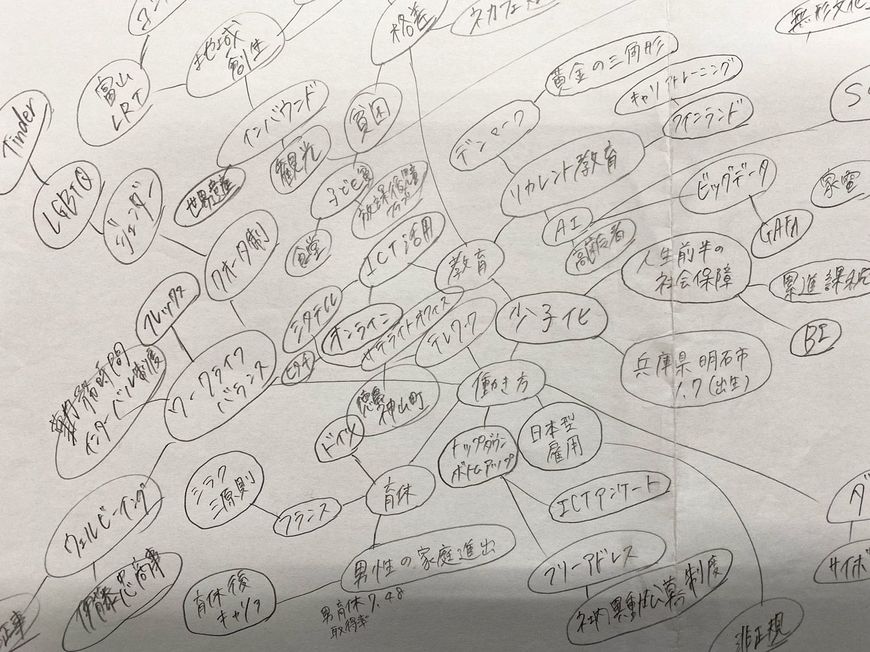 格差
ネカフェ
無形文化
地域
創生
富山
LRT
Tinder
黄金の三角形
キャリアトレーニング
フィンランド
デンマーク
インバウンド
貧困
観光
LGBTQ
ジェンダー
世界遺産
子ども
食堂
リカレント教育
ビッグデータ
家電
GAFA
AI
高齢者
クオータ制
ICT活用
教育
人生前半の
社会保障
累進課税
BI
フレックス
ミタテル
オンライン
サテライトオフィス
テレワーク
少子化
兵庫県明石市
1.7(出生)
勤務時間
インターバル制度
ワークライフ
バランス
働き方
徳島
神山町
ドイツ
トップダウン
ボトムアップ
日本型
雇用
ICTアンケート
シラク
三原則
フランス
育休
ウェルビーイング
伊藤忠商事
男性の家庭進出
男育休7.48
取得率
育休後
キャリア
フリーアドレス
社内異動公募制度
サイボ
非正規